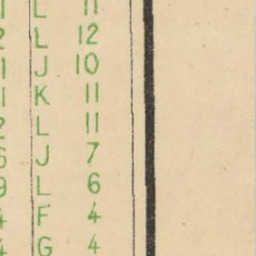 1 L 11
2 L 12
1 J 10
1 K 11
2 L 11
6 J 7
9 L 6
4 F 4
4 G 4